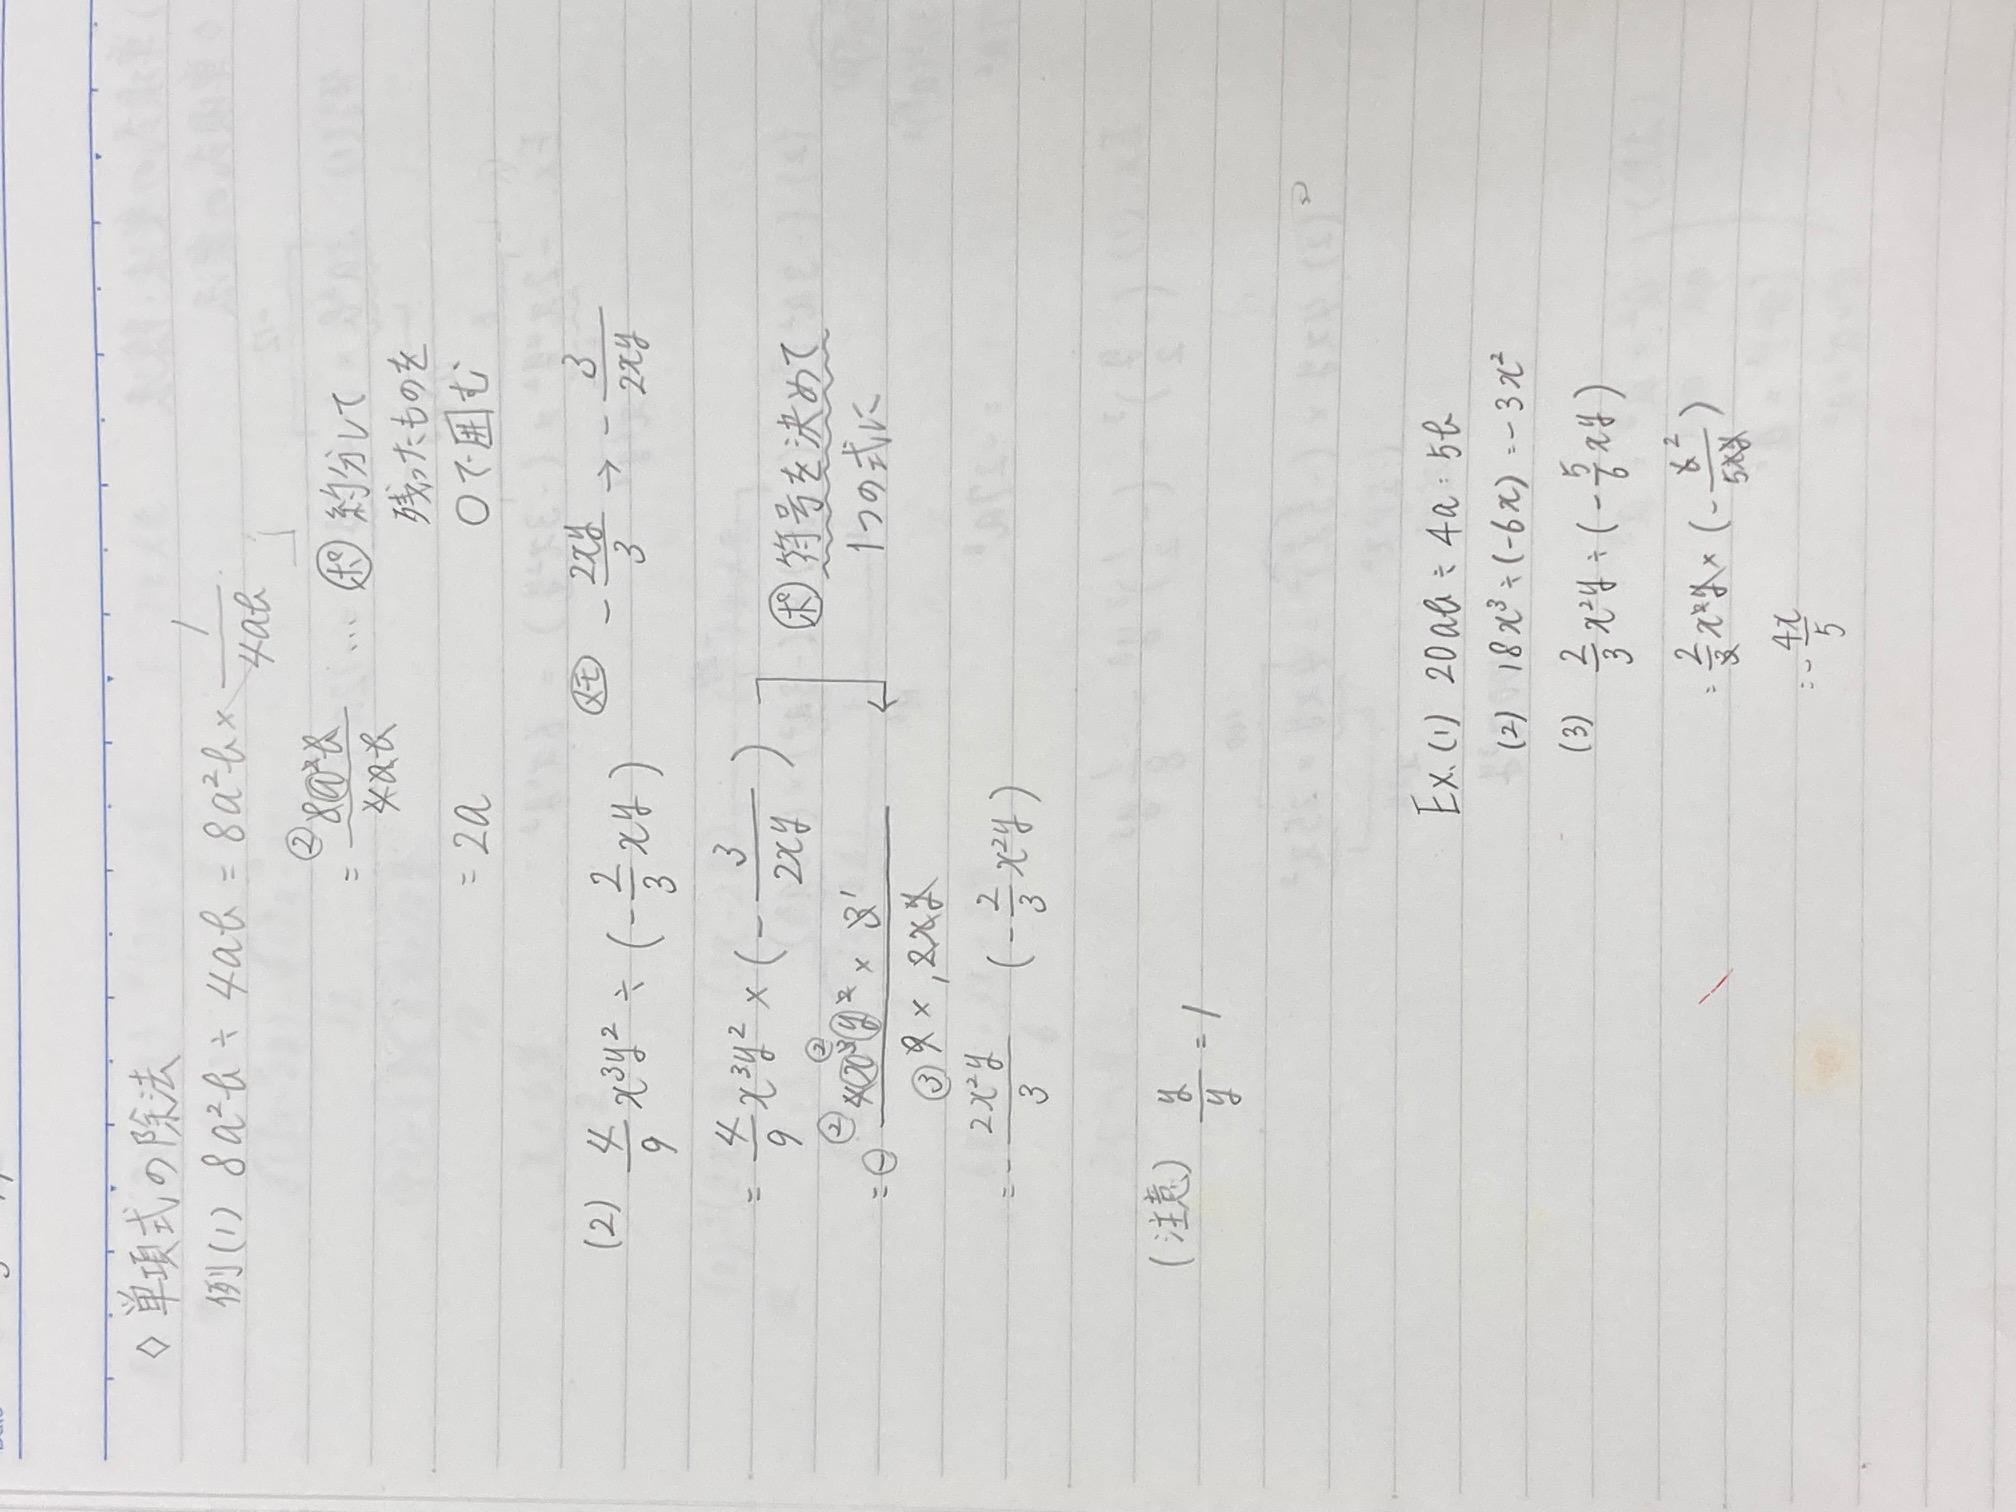 ◇ 単項式の除法
例(1) 8a²b ÷ 4ab = 8a²b × 1/4ab
= ②8a²b/4ab ㋭゚ 約分して
残ったものを
= 2a ○で囲む
(2) 4/9 x³y² ÷ (-2/3 xy) メモ -2xy/3 → -3/2xy
= 4/9 x³y² × (-3/2xy) ポ 符号を決めて
1つの式に
= ⊖ ②4x³y² × 3¹/③9 × ₁2xy
= -2x²y/3 (-2/3 x²y)
(注意) y/y = 1
Ex. (1) 20ab ÷ 4a = 5b
(2) 18x³ ÷ (-6x) = -3x²
(3) 2/3 x²y ÷ (-5/6 xy)
= 2/3 x²y × (-6²/5xy)
= -4x/5